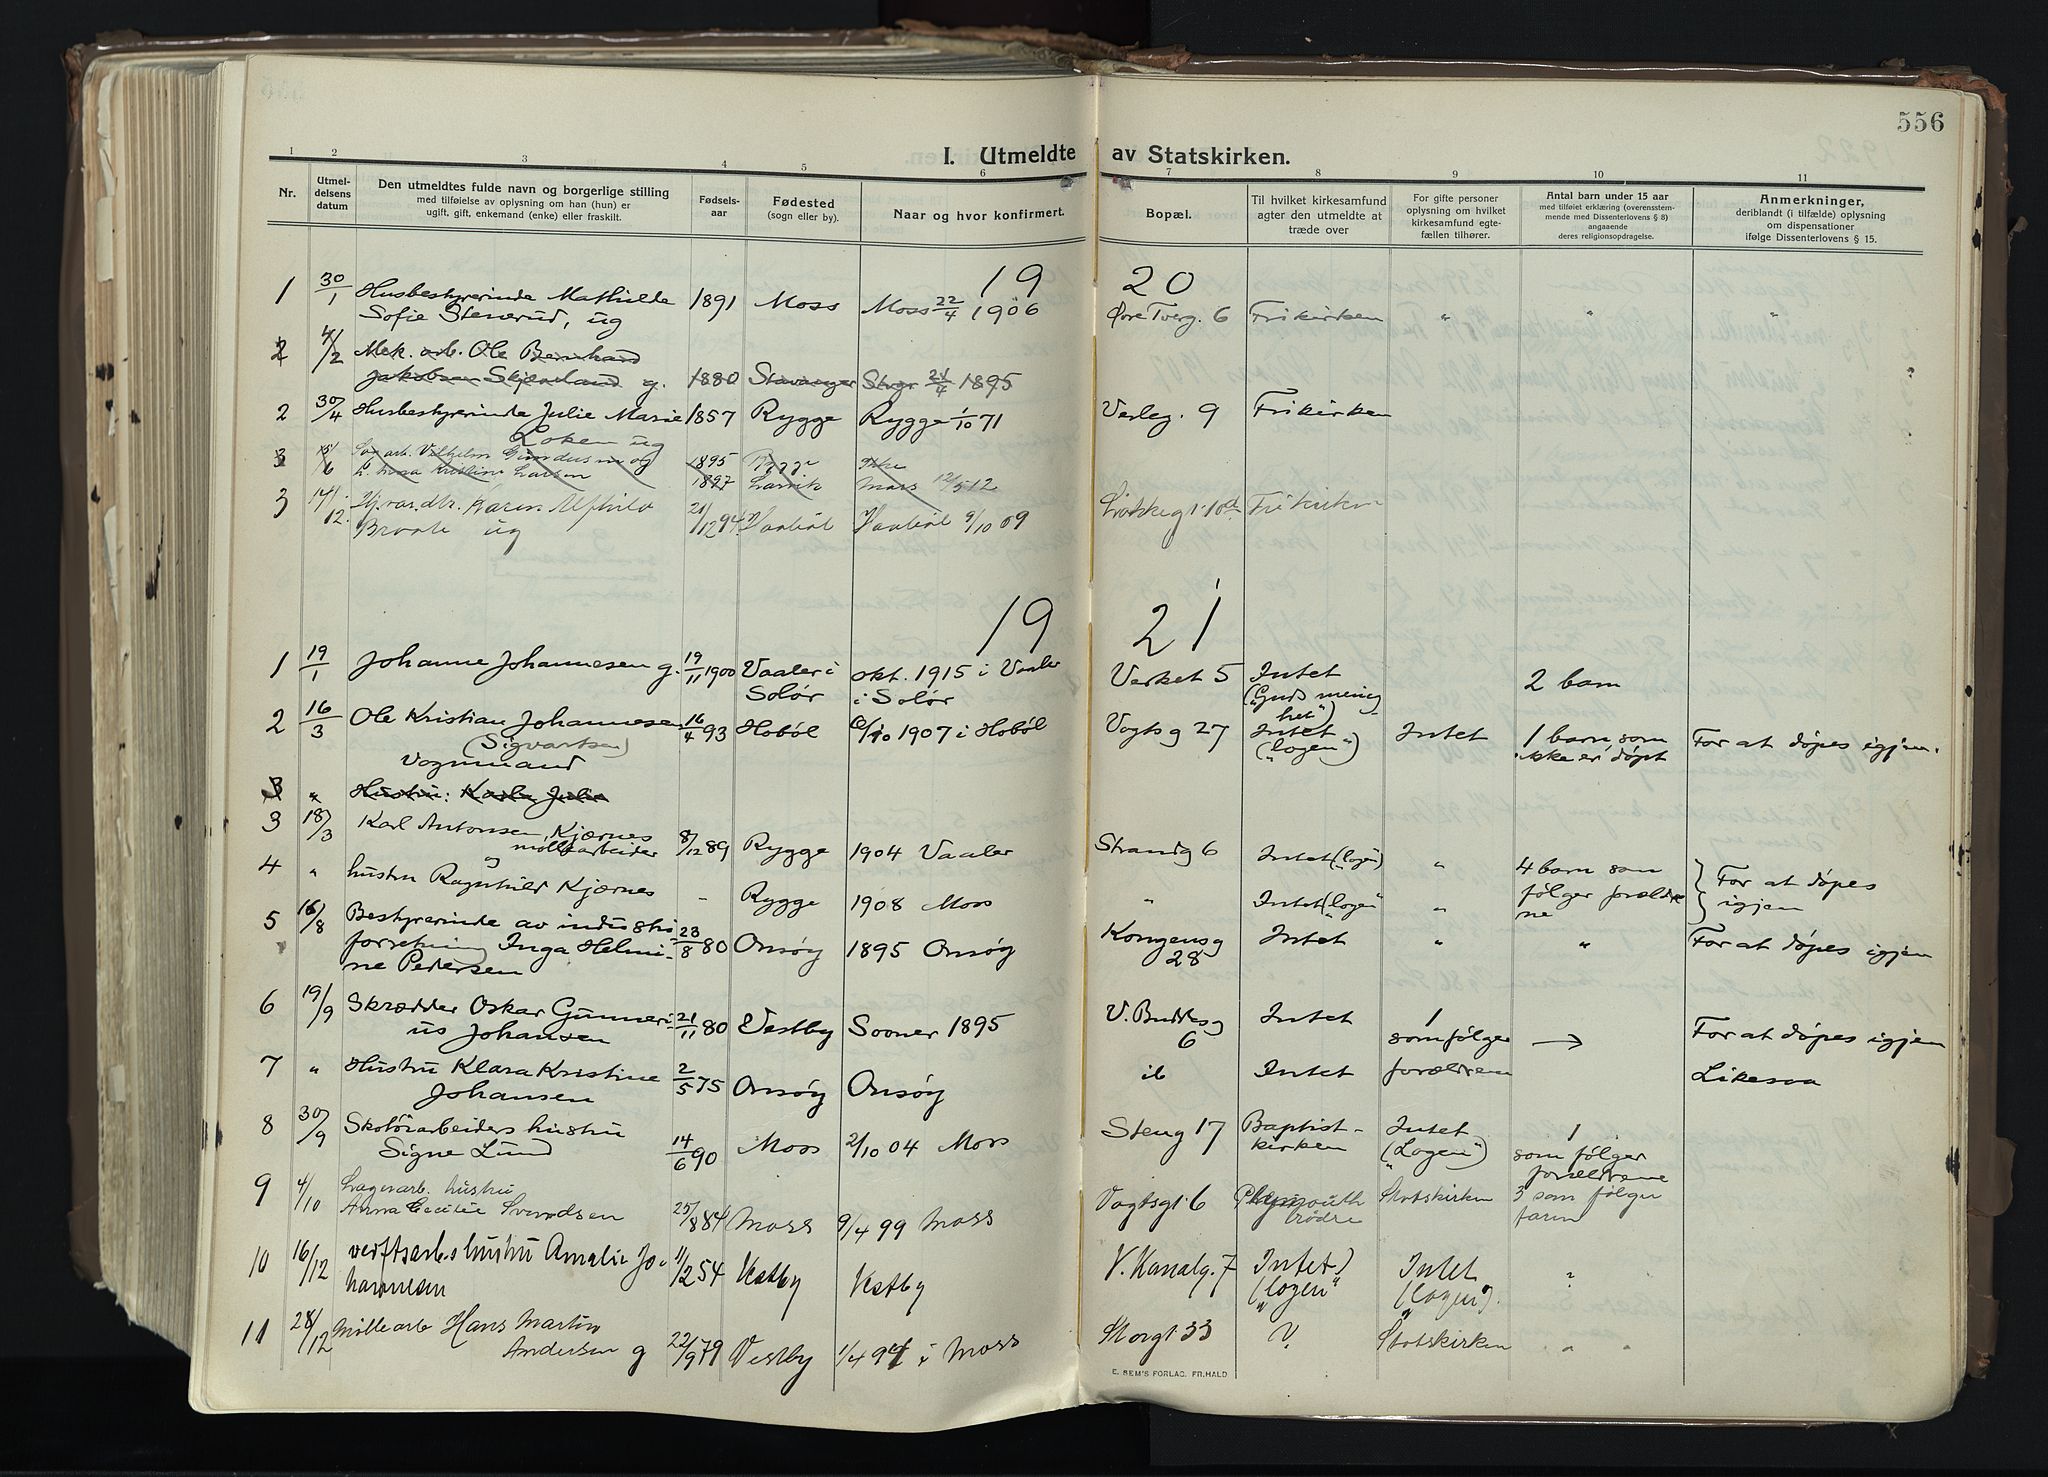 556
I. Utmeldte av Statskirken.
1 2 3 4 5 6 7 8 9 10 11
Nr.
Utmel-
delsens
datum
Den utmeldtes fulde navn og borgerlige stilling
med tilføielse av oplysning om han (hun) er
ugift, gift, enkemand (enke) eller fraskilt.
Fødsels-
aar
Fødested
(sogn eller by).
Naar og hvor konfirmert.
Bopæl.
Til hvilket kirkesamfund
agter den utmeldte at
træde over
For gifte personer
oplysning om hvilket
kirkesamfund egte-
fællen tilhører.
Antal barn under 15 aar
med tilføiet erklæring (overensstem-
mende med Dissenterlovens § 8)
angaaende
deres religionsopdragelse.
Anmerkninger,
deriblandt (i tilfælde) oplysning
om dispensationer
ifølge Dissenterlovens § 15.
19 20
1 30/1 Husbestyrerinde Mathilde 1891 Moss Moss 22/4 1906 Øvre Tverg. 6 Frikirken " " "
Sofie Stenerud, ug
2 4/2 Mek. arb. Ole Bernhard
Jakobsen Skjæveland g. 1880 Stavanger Stvgr 21/4 1895
2 30/4 Husbestyrerinde Julie Marie 1857 Rygge Rygge 1/10 71 Verleg. 9 Frikirken
Loken ug
3 15/6 Sag arb. Vilhelm Gundersen og 1895 Rygge ikke
Kristine Larsen 1897 Larvik Moss 12/5 12
3 14/12. Karen Alfhild 21/12 94 Vaabøl Vaabøl 9/10 09 Frikirken
Braate ug
19 21
1 19/1 Johanne Johannesen g. 19/11 1900 Vaaler i okt. 1915 i Vaaler Verket 5 Intet 2 barn
Solør i Solør ("Guds menig-
het")
2 16/3 Ole Kristian Johannesen 16/4 93 Hobøl 6/10 1907 i Hobøl Vogtsg 27 Intet Intet 1 barn som For at døpes igjen.
(Sigvartsen) ("logen") ikke er døpt
Vognmand
3 " Hustru: Karla Julie
3 18/3 Karl Antonsen Kjærnes 8/12 89 Rygge 1904 Vaaler Strandg 6 Intet ("logen") " 4 barn som For at døpes
møllearbeider
4 " hustru Ragnhild Kjærnes - Rygge 1908 Moss " Intet ("logen" " følger forældre igjen
ne
5 16/8 Bestyrerinde av industri 23/8 80 Onsøy 1895 Onsøy Kongensg Intet " " For at døpes igjen
forretning Inga Helmi- 28
ne Pedersen
6 19/9 Skrædder Oskar Gunneri- 21/11 80 Vestby Sooner 1895 V. Buddesg Intet 1 For at døpes igjen
us Johansen 6 som følger →
7 " Hustru Klara Kristine 2/5 75 Onsøy Onsøy ib Intet forældrene Likesaa
Johansen
8 30/9 Skotøiarbeiders hustru 14/6 90 Moss 2/10 04 Moss Steng 17 Baptist- Intet 1
Signe Lund kirken ("Logen") som følger
forældrene
9 4/10 Lagerarb. hustru 25/8 84 Moss 9/4 99 Moss Vogtsgt. 6 Plymouth Statskirken 3 som følger
Anna Cecilie Svendsen brødre faren
10 16/12 verftsarb.s hustru Amalie Jo- 11/2 54 Vestby Vestby V. Kanalg. 7 Intet) Intet "
hannesen ("logen" ("logen").
11 28/12 Møllearb Hans Martin 22/9 79 Vestby 1/4 94 i Moss Storgt 33 ? Statskirken " "
Andersen g
E. SEM'S FORLAG, FR.HALD